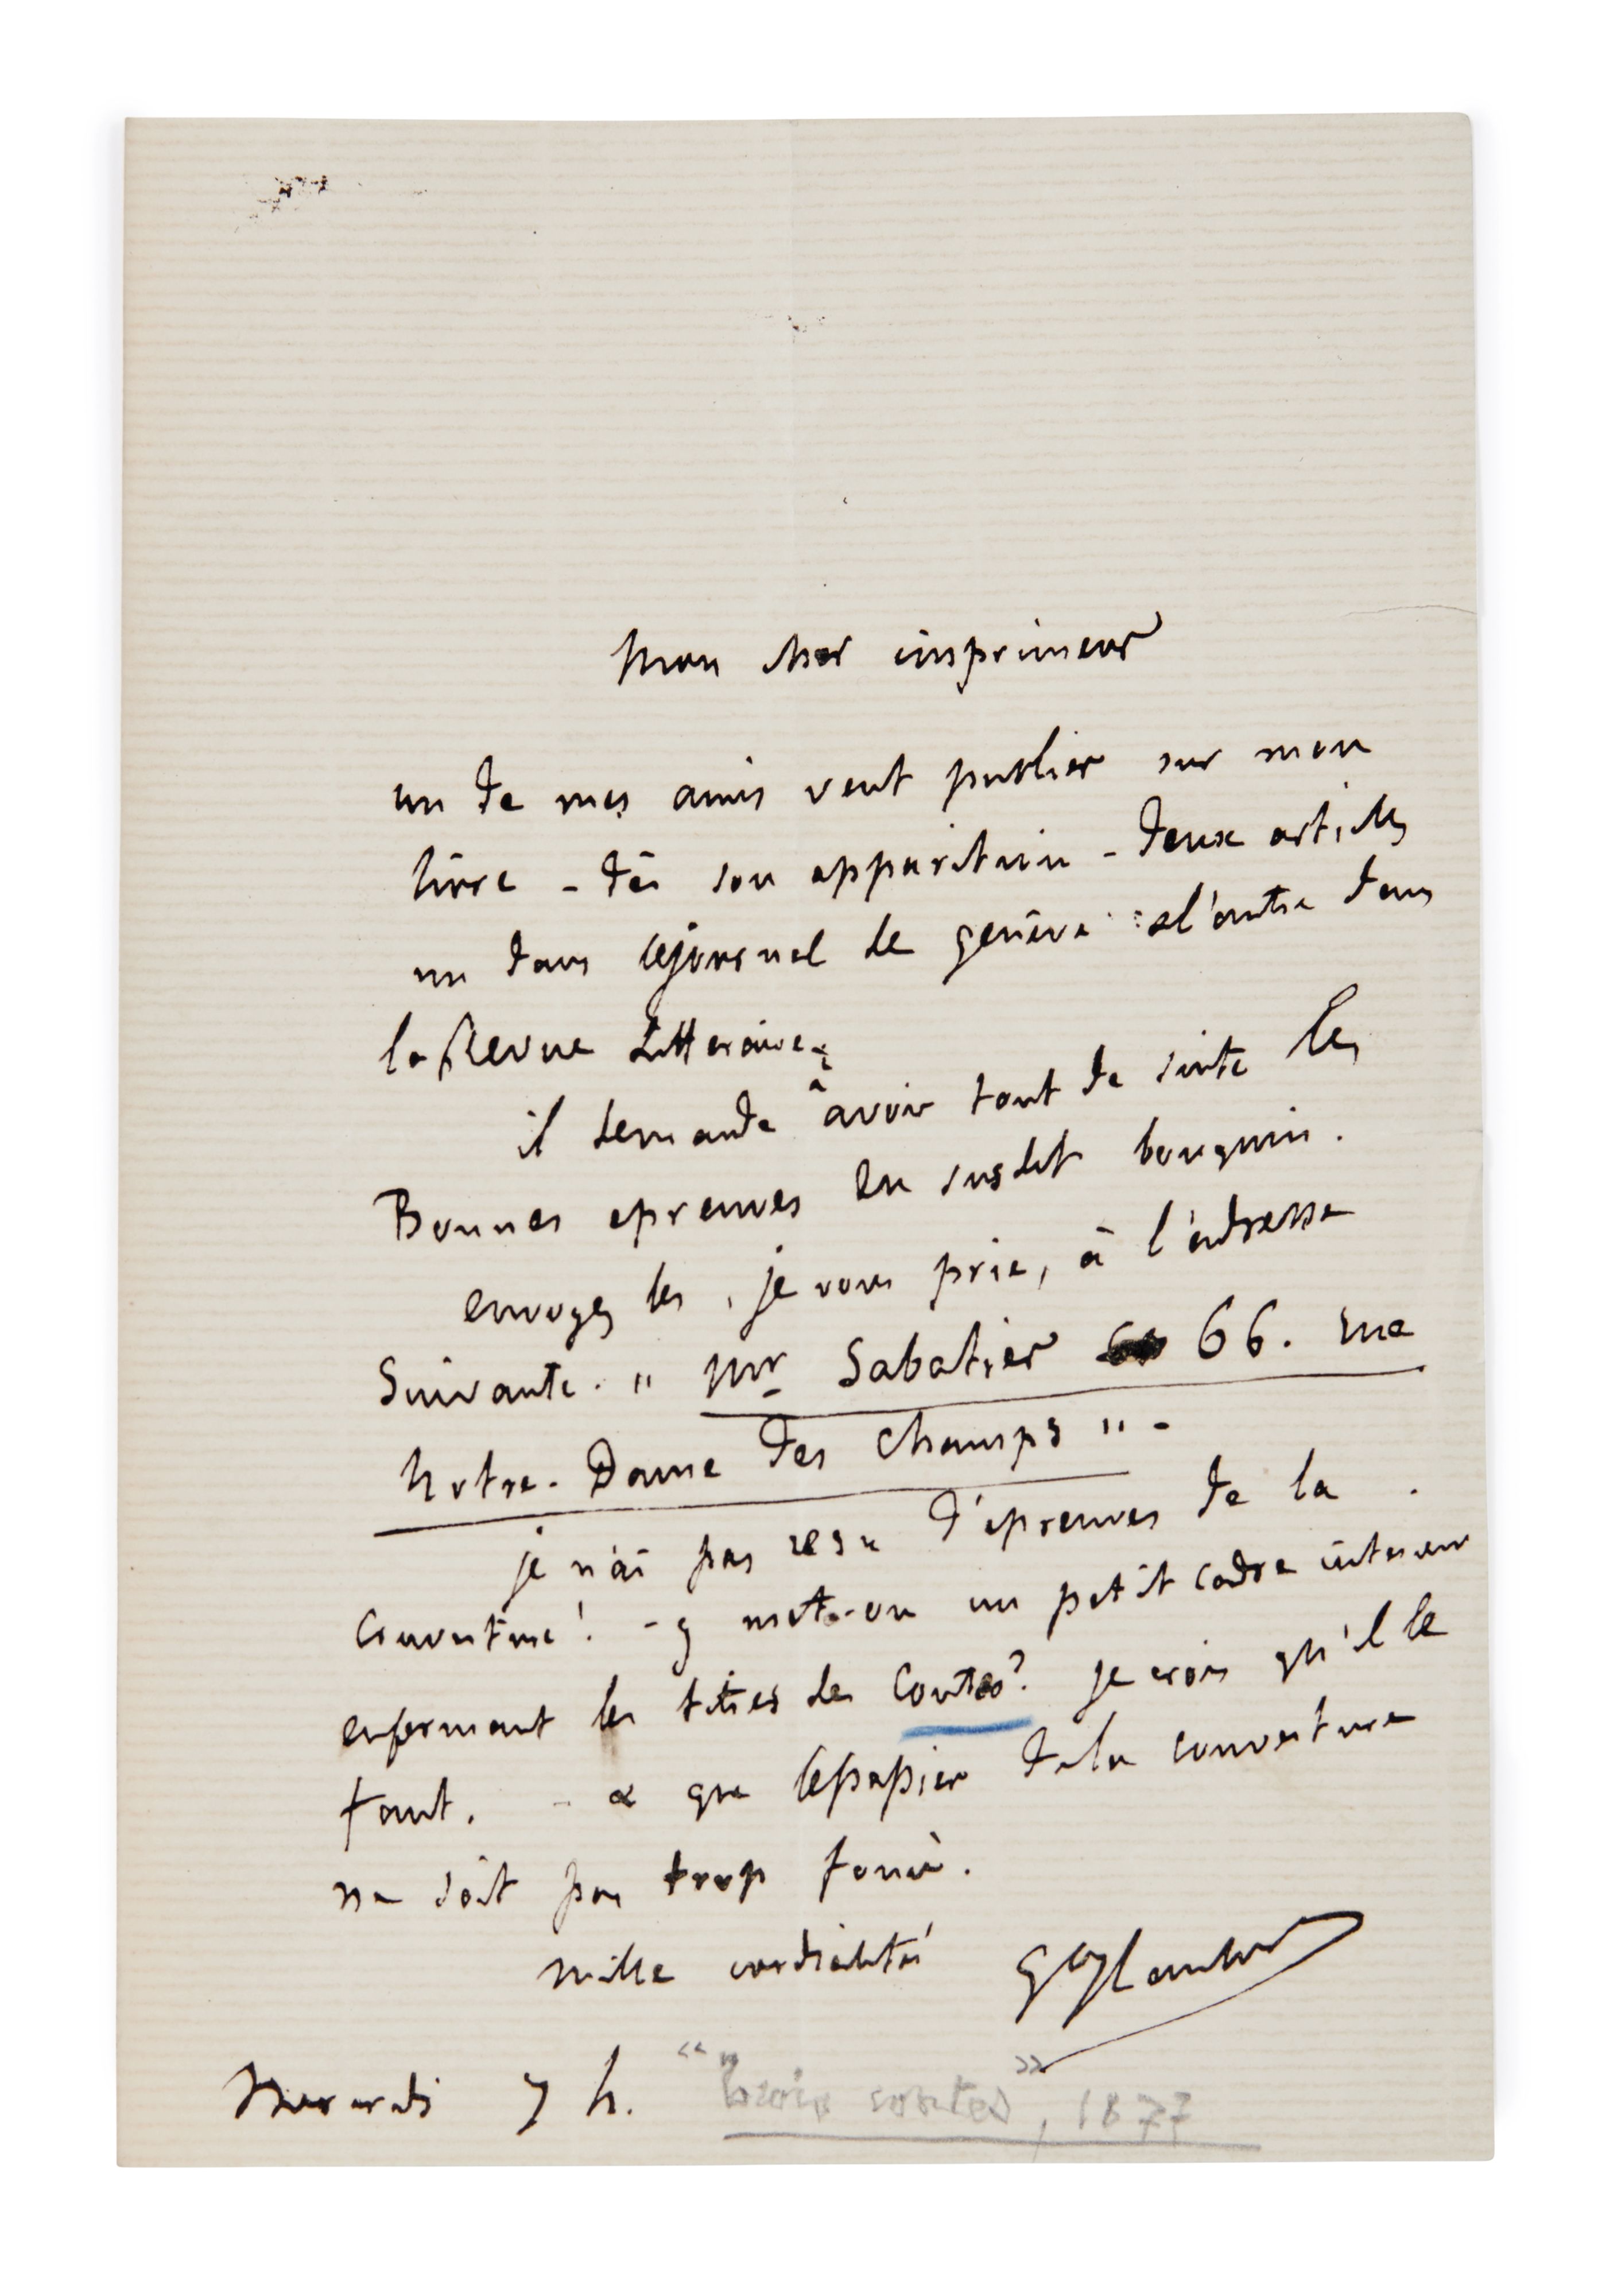 Mon cher imprimeur
un de mes amis veut publier sur mon
livre – dès son apparition – deux articles
un dans le journal de genève & l'autre dans
la Revue Litteraire.
il demande à avoir tout de suite les
Bonnes epreuves du susdit bouquin.
envoyez les, je vous prie, à l'adresse
Suivante. " Mr Sabatier 66. rue
Notre-Dame des Champs " –
je n'ai pas reçu d'épreuves de la
Couverture! – y met-on un petit cadre interieur
enfermant les titres des Contes? je crois qu'il le
faut. – & que le papier de la couverture
ne soit pas trop foncé.
mille cordialités GFlaubert
Mercredi 7 h. "trois contes", 1877